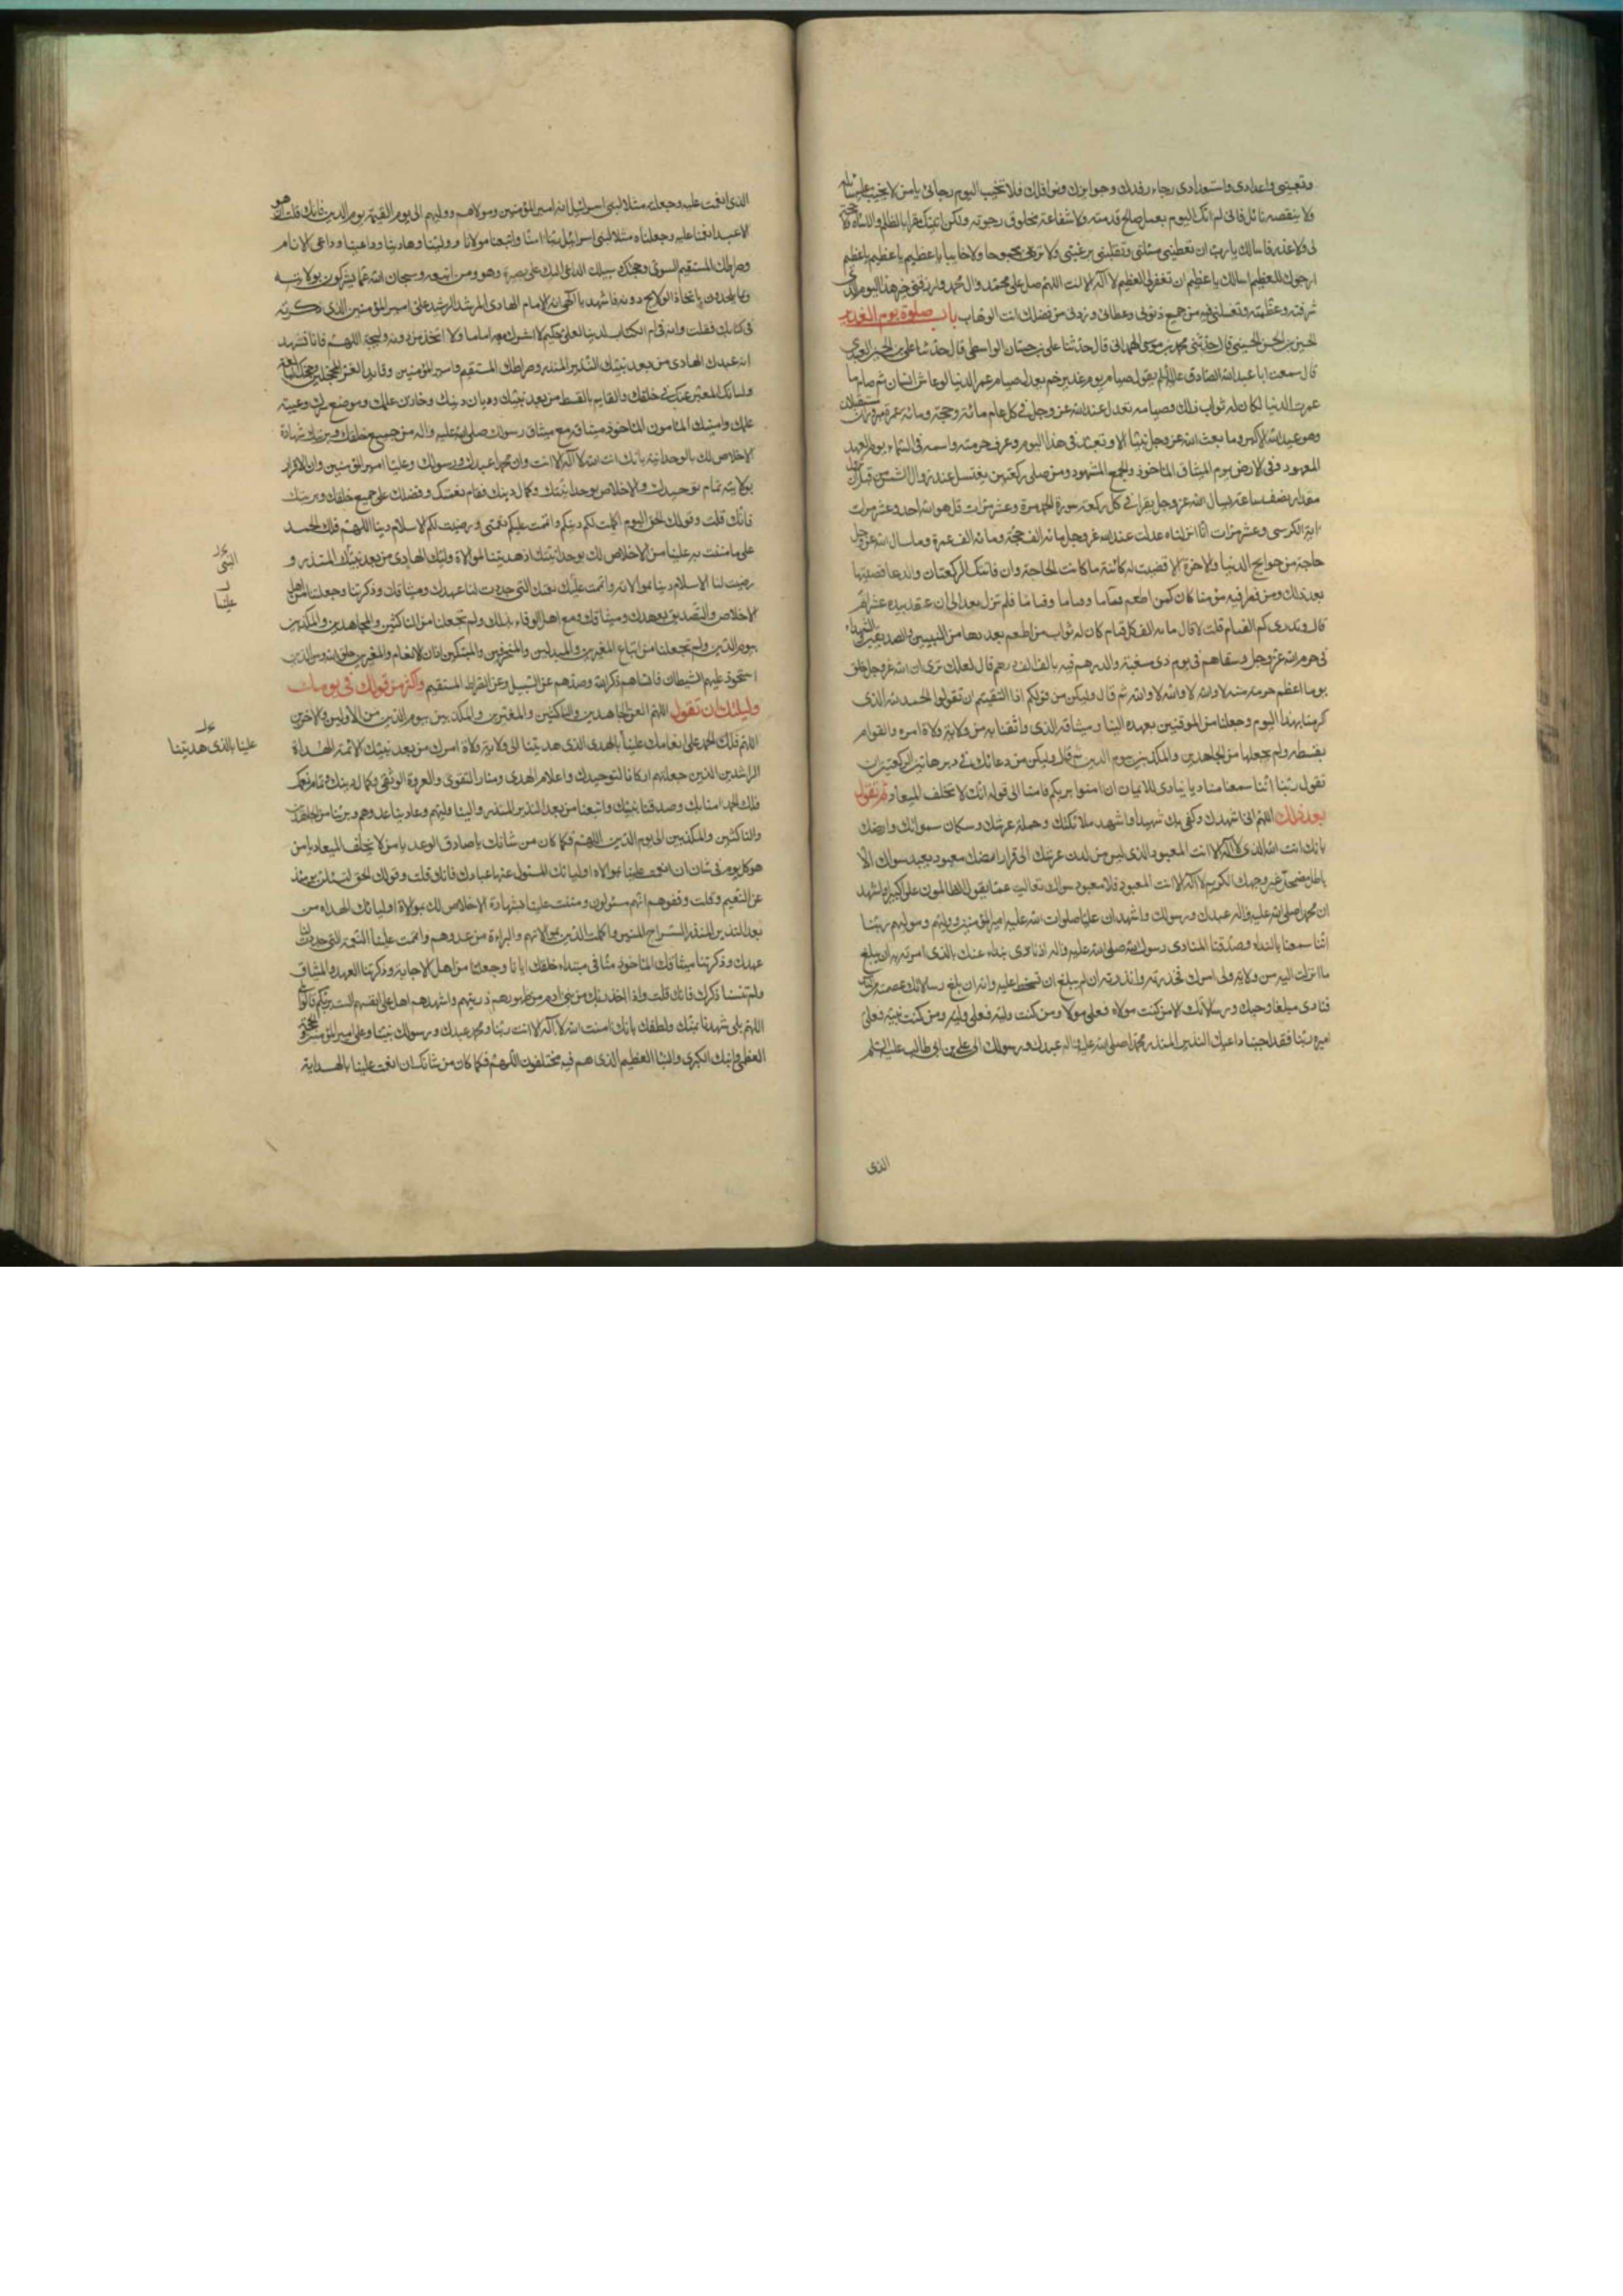 وتعبيتى واعدادى واستعدادى رجاء رفدك وجوايزك ونوافلك فلا تخيب اليوم رجائى يا من لا يخيب عليه سائل
ولا ينقصه نائل فانى لم اتك اليوم بعمل صالح قدمته ولا شفاعة مخلوق رجوته ولكن اتيتك مقرا بالظلم والاساءة لا حجة
لى ولا عذر فاسالك يا رب ان تعطينى مسئلتى وتقلبنى برغبتى ولا تردنى مجبوها ولا خايبا يا عظيم يا عظيم يا عظيم
ارجوك للعظيم اسالك يا عظيم ان تغفر لى العظيم لا اله الا انت اللهم صل على محمد وال محمد وارزقنى خير هذا اليوم الذى
شرفته وعظمته وتغسلنى فيه من جميع ذنوبى وخطائى وزدنى من فضلك انت الوهاب باب صلوة يوم الغدير
الحسين بن الحسن الحسينى قال حدثنى محمد بن موسى الهمدانى قال حدثنا على بن حسان الواسطى قال حدثنا على بن الحسين العبدى
قال سمعت ابا عبد الله الصادق عليه السلم يقول صيام يوم غدير خم يعدل صيام عمر الدنيا لو عاش انسان ثم صام ما
عمرت الدنيا لكان له ثواب ذلك وصيامه يعدل عند الله عز وجل فى كل عام مائة حجة ومائة عمرة مبرورات متقبلات
وهو عيد الله الاكبر وما بعث الله عز وجل نبيا الا وتعيد فى هذا اليوم وعرف حرمته واسمه فى السماء يوم العهد
المعهود وفى الارض يوم الميثاق الماخوذ والجمع المشهود ومن صلى ركعتين يغتسل عند زوال الشمس من قبل ان تزول
مقدار نصف ساعة يسال الله عز وجل يقرا فى كل ركعة سورة الحمد مرة وعشر مرات قل هو الله احد وعشر مرات
اية الكرسى وعشر مرات انا انزلناه عدلت عند الله عز وجل مائة الف حجة ومائة الف عمرة وما سال الله عز وجل
حاجة من حوايج الدنيا والاخرة الا قضيت له كائنة ما كانت الحاجة وان فاتتك الركعتان والدعا قضيتها
بعد ذلك ومن فطر فيه مؤمنا كان كمن اطعم فئاما وفئاما وفئاما فلم تزل يعد الى ان عقد بيده عشرا ثم
قال وتدرى كم الفئام قلت لا قال مائة الف كل فئام كان له ثواب من اطعم بعددها من النبيين والصديقين والشهداء
فى حرم الله عز وجل وسقاهم فى يوم ذى مسغبة والدرهم فيه بالف الف درهم قال لعلك ترى ان الله عز وجل خلق
يوما اعظم حرمة منه لا والله لا والله لا والله ثم قال وليكن من قولكم اذا التقيتم ان تقولوا الحمد لله الذى
اكرمنا بهذا اليوم وجعلنا من الموقنين بعهده الينا وميثاقه الذى واثقنا به من ولاية ولاة امره والقوام
بقسطه ولم يجعلنا من الجاحدين والمكذبين بيوم الدين ثم قال وليكن من دعائك فى دبر هاتين الركعتين ان
تقول ربنا اننا سمعنا مناديا ينادى للايمان ان امنوا بربكم فامنا الى قوله انك لا تخلف الميعاد ثم تقول
بعد ذلك اللهم انى اشهدك وكفى بك شهيدا واشهد ملائكتك وحملة عرشك وسكان سمواتك وارضك
بانك انت الله الذى لا اله الا انت المعبود الذى ليس من لدن عرشك الى قرار ارضك معبود يعبد سواك الا
باطل مضمحل غير وجهك الكريم لا اله الا انت المعبود فلا معبود سواك تعاليت عما يقول الظالمون علوا كبيرا واشهد
ان محمدا صلى الله عليه واله عبدك ورسولك واشهد ان عليا صلوات الله عليه امير المؤمنين ووليهم ومولاهم ربنا
اننا سمعنا بالنداء وصدقنا المنادى رسول الله صلى الله عليه واله اذ نادى بنداء عنك بالذى امرته به ان يبلغ
ما انزلت اليه من ولاية ولى امرك فحذرته وانذرته ان لم يبلغ ان تسخط عليه وانه ان بلغ رسالاتك عصمته من الناس
فنادى مبلغا وحيك ورسالاتك الا من كنت مولاه فعلى مولاه ومن كنت وليه فعلى وليه ومن كنت نبيه فعلى
اميره ربنا فقد اجبنا داعيك النذير المنذر محمدا صلى الله عليه واله عبدك ورسولك الى على بن ابى طالب عليه السلم
الذى
الذى انعمت عليه وجعلته مثلا لبنى اسرائيل انه امير المؤمنين ومولاهم ووليهم الى يوم القيمة يوم الدين فانك قلت ان هو
الا عبد انعمنا عليه وجعلناه مثلا لبنى اسرائيل ربنا امنا واتبعنا مولانا وولينا وهادينا وداعينا وداعى الانام
وصراطك المستقيم السوى وحجتك وسبيلك الداعى اليك على بصيرة وهو ومن اتبعه وسبحان الله عما يشركون بولايته
وبما يلحدون باتخاذ الولايج دونه فاشهد يا الهى انه الامام الهادى المرشد الرشيد على امير المؤمنين الذى ذكرته
فى كتابك فقلت وانه فى ام الكتاب لدينا لعلى حكيم لا اشرك معه اماما ولا اتخذ من دونه وليجة اللهم فانا نشهد
انه عبدك الهادى من بعد نبيك النذير المنذر وصراطك المستقيم وامير المؤمنين وقايد الغر المحجلين وحجتك البالغة
ولسانك المعبر عنك فى خلقك والقايم بالقسط من بعد نبيك وديان دينك وخازن علمك وموضع سرك وعيبة
علمك وامينك المامون الماخوذ ميثاقه مع ميثاق رسولك صلى الله عليه واله من جميع خلقك وبريتك شهادة
الاخلاص لك بالوحدانية بانك انت الله لا اله الا انت وان محمدا عبدك ورسولك وعليا امير المؤمنين وان الاقرار
بولايته تمام توحيدك والاخلاص بوحدانيتك وكمال دينك وتمام نعمتك وفضلك على جميع خلقك وبريتك
فانك قلت وقولك الحق اليوم اكملت لكم دينكم واتممت عليكم نعمتى ورضيت لكم الاسلام دينا اللهم فلك الحمد
على ما مننت به علينا من الاخلاص لك بوحدانيتك اذ هديتنا لموالاة وليك الهادى من بعد نبيك المنذر و
رضيت لنا الاسلام دينا بموالاته واتممت علينا نعمتك التى جددت لنا عهدك وميثاقك وذكرتنا وجعلتنا من اهل
الاخلاص والتصديق بعهدك وميثاقك ومع اهل الوفاء بذلك ولم تجعلنا من الناكثين والجاحدين والمكذبين
بيوم الدين ولم تجعلنا من اتباع المغيرين والمبدلين والمنحرفين والمبتكين اذان الانعام والمغيرين خلق الله ومن الذين
استحوذ عليهم الشيطان فانساهم ذكر الله وصدهم عن السبيل وعن الصراط المستقيم واكثر من قولك فى يومك
وليلتك ان تقول اللهم العن الجاحدين والناكثين والمغيرين والمكذبين بيوم الدين من الاولين والاخرين
اللهم فلك الحمد على انعامك علينا بالهدى الذى هديتنا الى ولاية ولاة امرك من بعد نبيك الائمة الهداة
الراشدين الذين جعلتهم اركانا لتوحيدك واعلام الهدى ومنار التقوى والعروة الوثقى وكمال دينك وتمام نعمتك
فلك الحمد امنا بك وصدقنا بنبيك واتبعنا من بعده النذير المنذر والينا وليهم وعادينا عدوهم وبرئنا من الجاحدين
والناكثين والمكذبين الى يوم الدين اللهم فكما كان من شانك يا صادق الوعد يا من لا يخلف الميعاد يا من
هو كل يوم فى شان ان انعمت علينا بموالاة اوليائك المسئول عنها عبادك فانك قلت وقولك الحق لتسئلن يومئذ
عن النعيم وقلت وقفوهم انهم مسئولون ومننت علينا بشهادة الاخلاص لك بموالاة اوليائك الهداة من
بعد النذير المنذر السراج المنير واكملت الدين بموالاتهم والبراءة من عدوهم واتممت علينا النعمة التى جددت لنا
عهدك وذكرتنا ميثاقك الماخوذ منا فى مبتداء خلقك ايانا وجعلتنا من اهل الاجابة وذكرتنا العهد والميثاق
ولم تنسنا ذكرك فانك قلت واذ اخذ ربك من بنى ادم من ظهورهم ذريتهم واشهدهم على انفسهم الست بربكم قالوا بلى
اللهم بلى شهدنا بمنك ولطفك بانك انت الله لا اله الا انت ربنا ومحمد عبدك ورسولك نبينا وعلى امير المؤمنين وحجتك
العظمى وايتك الكبرى والنبا العظيم الذى هم فيه مختلفون اللهم فكما كان من شانك ان انعمت علينا بالهداية
النبى
علينا
علينا بالذى هديتنا